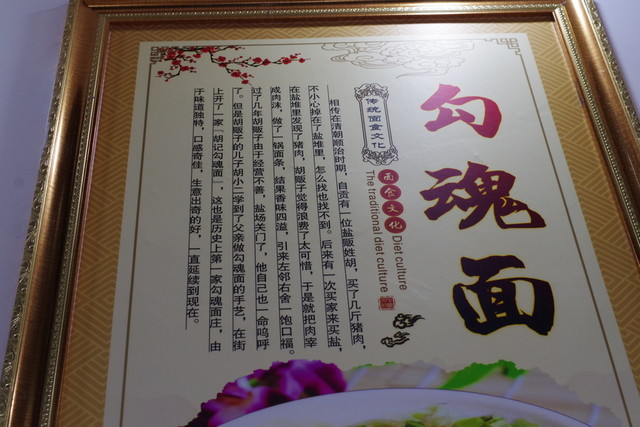 勾魂面
面食文化
Diet culture
The traditional diet culture
传统面食文化
相传在清朝顺治时期，自贡有一位盐贩姓胡，买了几斤猪肉，
不小心掉在了盐堆里，怎么找也找不到。后来有一次买家来买盐，
在盐堆里发现了猪肉，胡贩子觉得浪费了太可惜，于是就把肉宰
成肉沫，做了一锅面条，结果香味四溢，引来左邻右舍一饱口福。
过了几年胡贩子由于经营不善，盐场关门了，他自己也一命呜呼
了。但是胡贩子的儿子胡小二学到了父亲做勾魂面的手艺，在街
上开了一家“胡记勾魂面”，这也是历史上第一家勾魂面庄，由
于味道独特，口感奇佳，生意出奇的好，一直延续到现在。